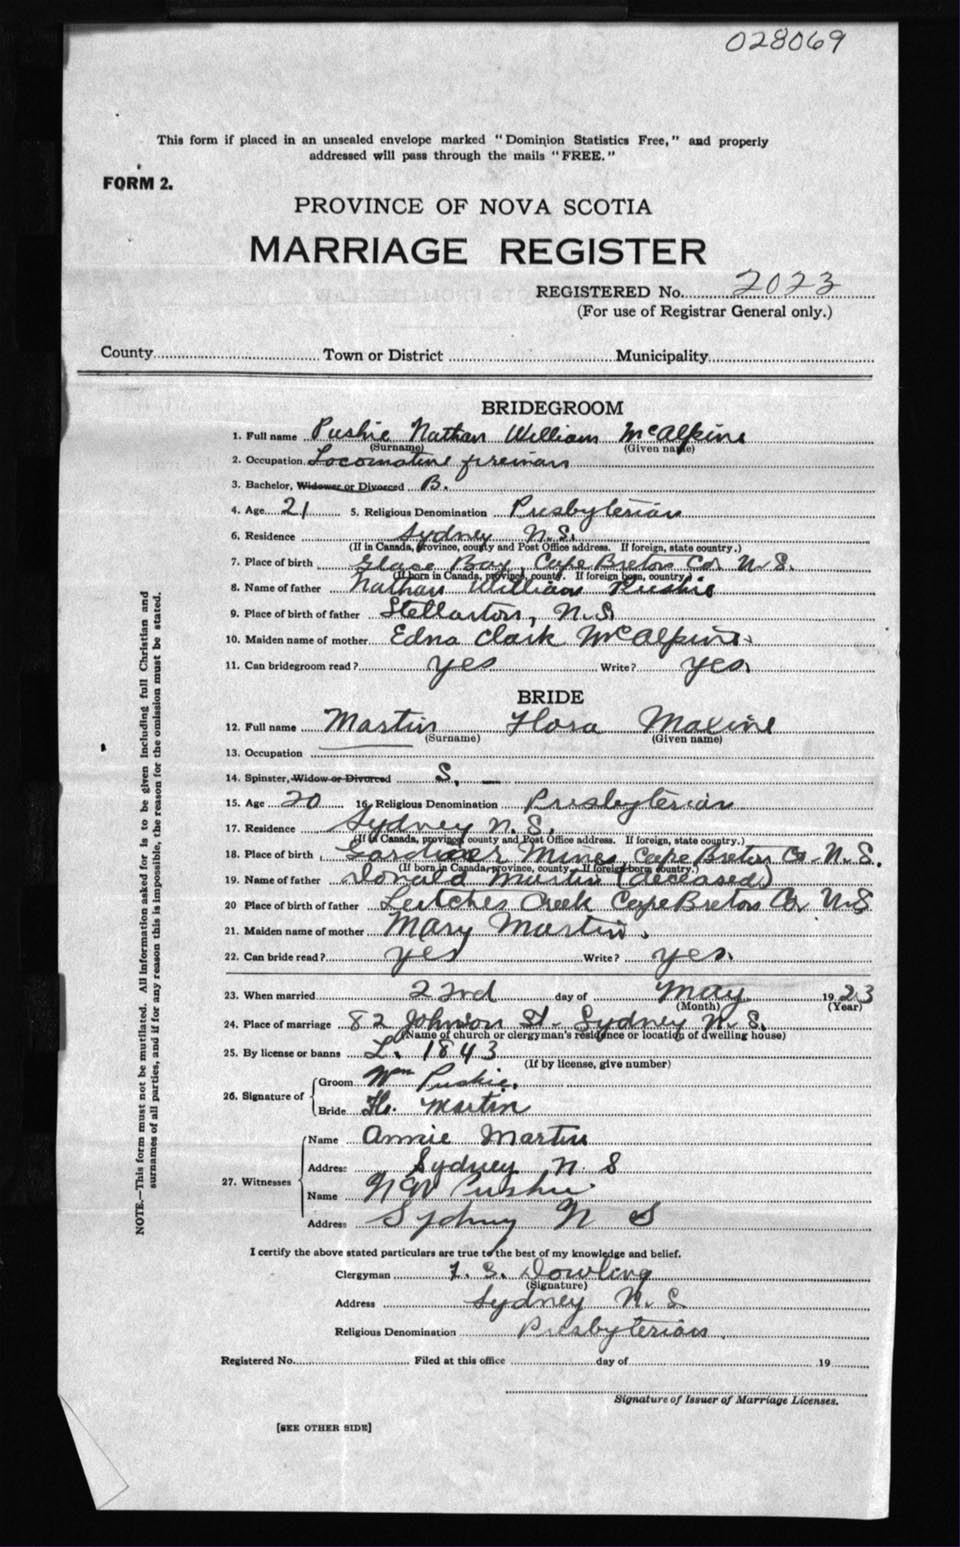 028069
This form if placed in an unsealed envelope marked "Dominion Statistics Free," and properly
addressed will pass through the mails "FREE."
FORM 2.
PROVINCE OF NOVA SCOTIA
MARRIAGE REGISTER
REGISTERED No. 2023
(For use of Registrar General only.)
County Town or District Municipality
BRIDEGROOM
1. Full name Pushie Nathan William McAlpine
(Surname) (Given name)
2. Occupation Locomotive fireman
3. Bachelor, Widower or Divorced B.
4. Age 21 5. Religious Denomination Presbyterian
6. Residence Sydney N.S.
(If in Canada, province, county and Post Office address. If foreign, state country.)
7. Place of birth Glace Bay, Cape Breton Co. N.S.
(If born in Canada, province, county. If foreign born, country.)
8. Name of father Nathan William Pushie
9. Place of birth of father Stellarton, N.S.
10. Maiden name of mother Edna Clark McAlpine
11. Can bridegroom read? yes Write? yes
BRIDE
12. Full name Martin Flora Maxine
(Surname) (Given name)
13. Occupation
14. Spinster, Widow or Divorced S. —
15. Age 20 16. Religious Denomination Presbyterian
17. Residence Sydney N.S.
(If in Canada, province, county and Post Office address. If foreign, state country.)
18. Place of birth Gardiner Mines, Cape Breton Co. N.S.
(If born in Canada, province, county. If foreign born country.)
19. Name of father Donald Martin (deceased)
20 Place of birth of father Leitches Creek Cape Breton Co. N.S
21. Maiden name of mother Mary Martin.
22. Can bride read? yes Write? yes.
23. When married 23rd day of May 1923
(Month) (Year)
24. Place of marriage 82 Johnson St. Sydney N.S.
(Name of church or clergyman's residence or location of dwelling house)
25. By license or banns L. 1843
(If by license, give number)
26. Signature of Groom Wm Pushie.
Bride Flo. Martin
27. Witnesses Name Annie Martin
Address Sydney N.S
Name N W Pushie
Address Sydney N S
I certify the above stated particulars are true to the best of my knowledge and belief.
Clergyman Dowling
(Signature)
Address Sydney N.S.
Religious Denomination Presbyterian.
Registered No. Filed at this office day of 19
Signature of Issuer of Marriage Licenses.
[SEE OTHER SIDE]
NOTE.—This form must not be mutilated. All information asked for is to be given including full Christian and
surnames of all parties, and if for any reason this is impossible, the reason for the omission must be stated.